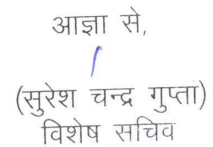 आज्ञा से,
(सुरेश चन्द्र गुप्ता)
विशेष सचिव